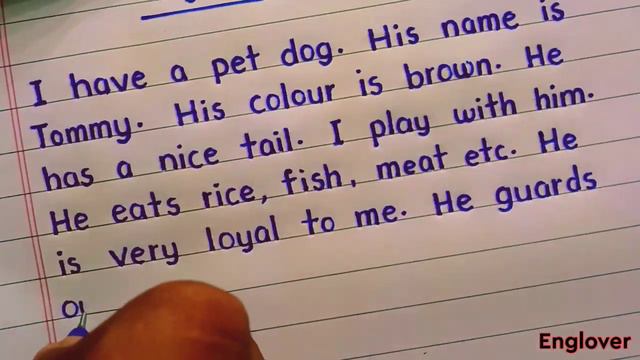 I have a pet dog. His name is
Tommy. His colour is brown. He
has a nice tail. I play with him.
He eats rice, fish, meat etc. He
is very loyal to me. He guards
Englover